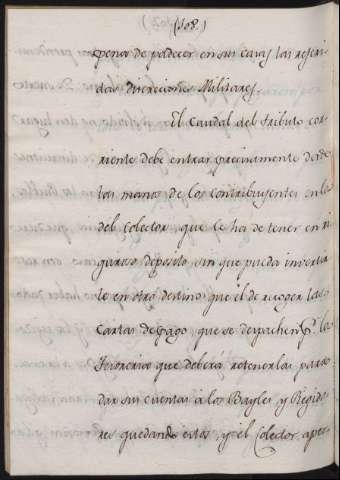 (108.)
pena de padecer en sus casas las referi-
das discreciones Militares.
El Caudal del Tributo cor-
riente debe entrar precisamente desde
las manos de los contribuyentes en las
del Colector, que le ha de tener en ri-
guroso deposito sin que pueda invertir-
le en otro destino que el de recoger las
Cartas de pago, que se despachen p.r las
Tesorerias que deberá retenerlas para
dar sus cuentas à los Bayles y Regido-
res quedando estos y el Colector, aper-